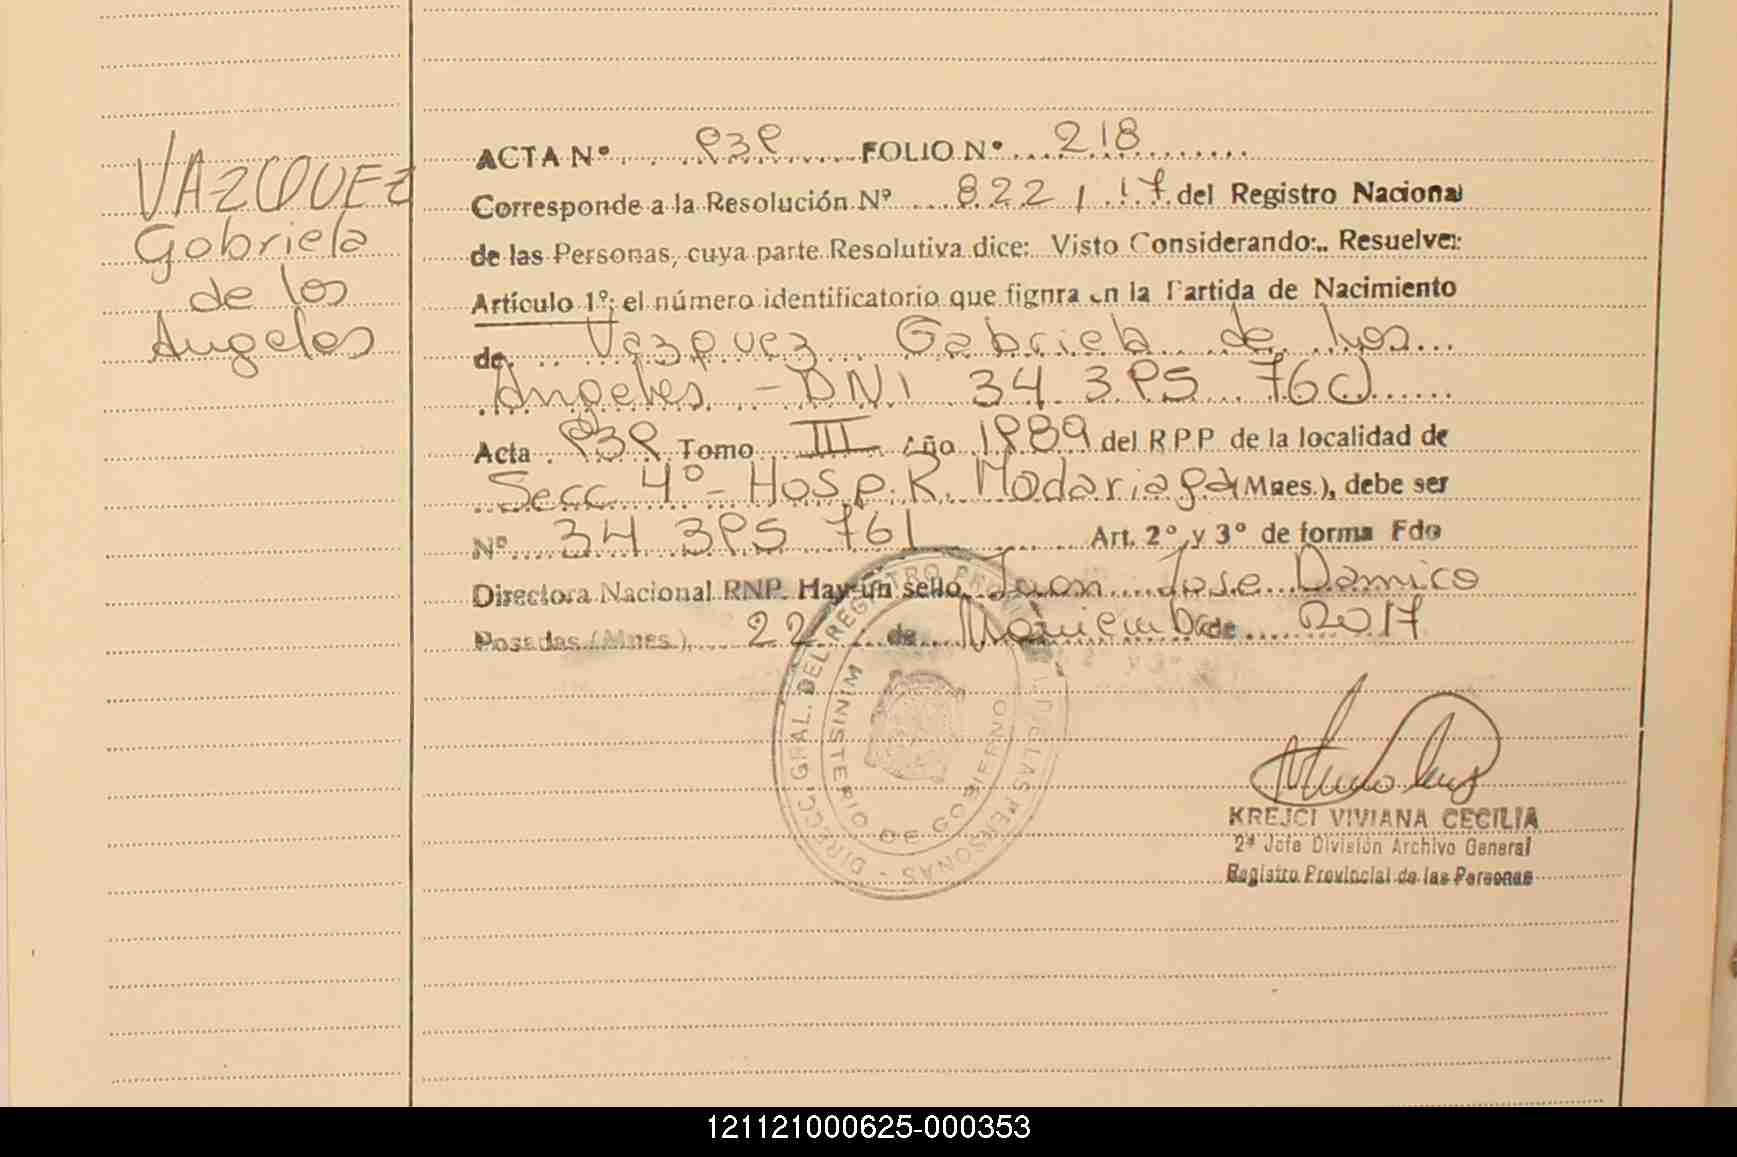 VAZQUEZ
Gabriela
de los
Angeles
ACTA Nº 939 FOLIO Nº 218
Corresponde a la Resolución Nº 822 / 17 del Registro Nacional
de las Personas, cuya parte Resolutiva dice: Visto Considerando:.. Resuelve:
Artículo 1º: el número identificatorio que fignra en la Partida de Nacimiento
de Vazquez Gabriela de los
Angeles - DNI 34 395 760
Acta 939 Tomo III Año 1989 del R P P de la localidad de
Secc 4º - Hosp. R. Madariaga (Mnes.), debe ser
Nº 34 395 761 Art. 2º y 3º de forma Fdo
Directora Nacional RNP. Hay un sello. Juan Jose Damico
Posadas (Mnes.), 22 de Noviembre de 2017
DIRECC. GRAL. DEL REGISTRO PROVINCIAL DE LAS PERSONAS -
MINISTERIO DE GOBIERNO
KREJCI VIVIANA CECILIA
2ª Jefe División Archivo General
Registro Provincial de las Personas
121121000625-000353